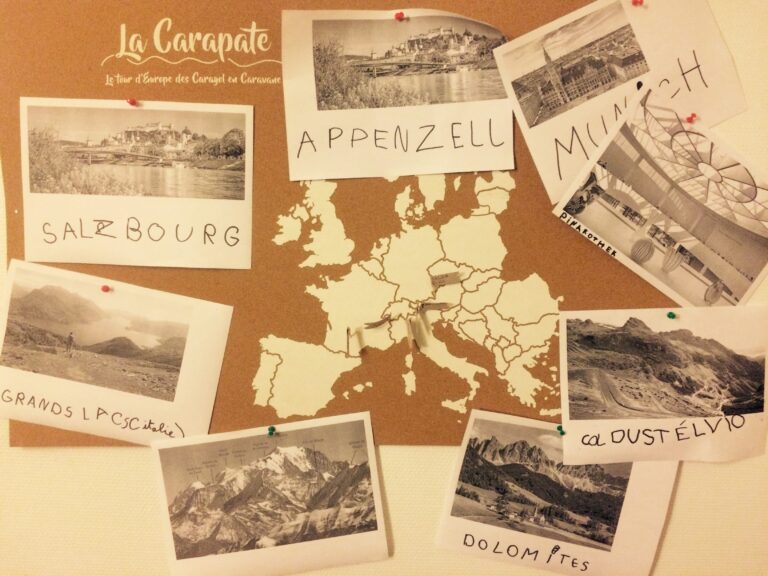 La Carapate
Le tour d'Europe des Carayol en Caravane
APPENZELL
MUNICH
SALZBOURG
PINAKOTHEK
GRANDS LACS (italie)
COL DU STÉLVIO
DOLOMITES